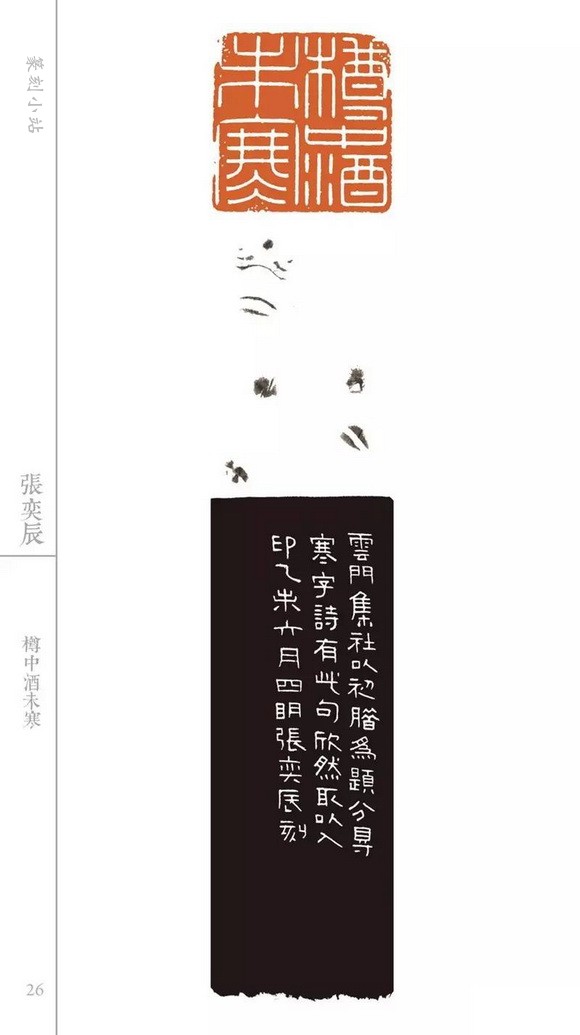 樽中酒
未寒
雲門集社以初腊爲題分㝵
寒字詩有此句欣然取以入
印乙未六月四明張奕辰刻
篆刻小站
張奕辰
樽中酒未寒
26